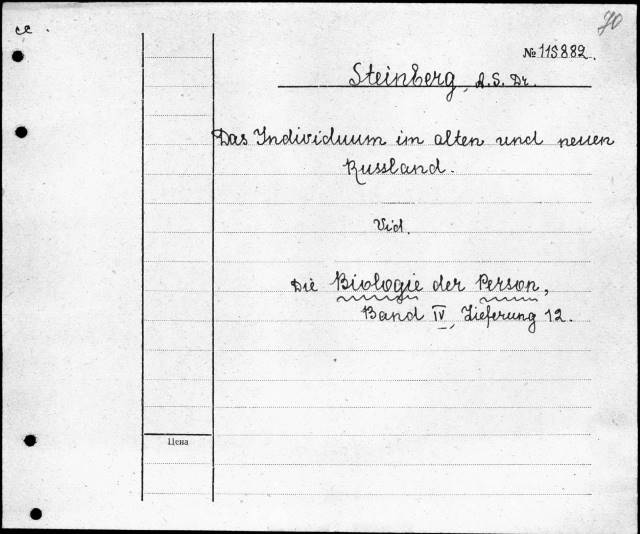 cc.
70
№ 115882.
Steinberg, A. S. Dr.
Das Individuum im alten und neuen
Russland.
Vid.
Die Biologie der Person,
Band IV, Lieferung 12.
Цена